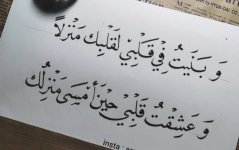 وَ بَنَيتُ فِي قَلبِي لَقَلبِكَ مَنْزِلاً
وَ عَشِقْتُ قَلبِي حِينَ أَمسَى مَنْزِلُك
insta